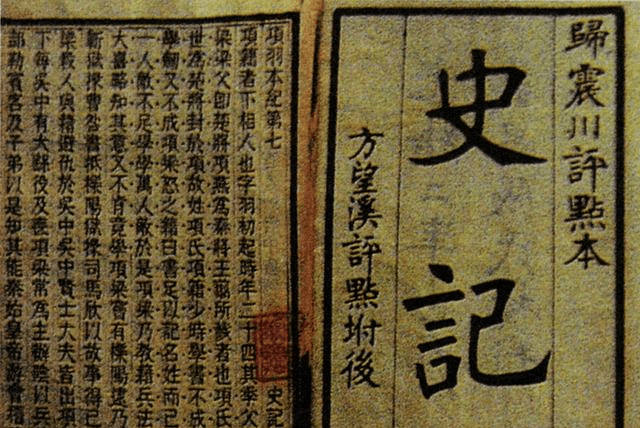 歸震川評點本
史記
方望溪評點坿後
項羽本紀第七
史記
項籍者下相人也字羽初起時年二十四其季父
梁梁父卽楚將項燕爲秦將王翦所戮者也項氏
世爲楚將封於項故姓項氏項籍少時學書不成
學劒又不成項梁怒之籍曰書足以記名姓而已
一人敵不足學學萬人敵於是項梁乃教籍兵法
大喜略知其意又不肯竟學項梁嘗有櫟陽逮乃
蘄獄掾曹咎書抵櫟陽獄掾司馬欣以故事得已
梁殺人與籍避仇於吳中吳中賢士大夫皆出項
下每吳中有大繇役及喪項梁常爲主辦陰以兵
部勒賓客及子弟以是知其能秦始皇帝游會稽